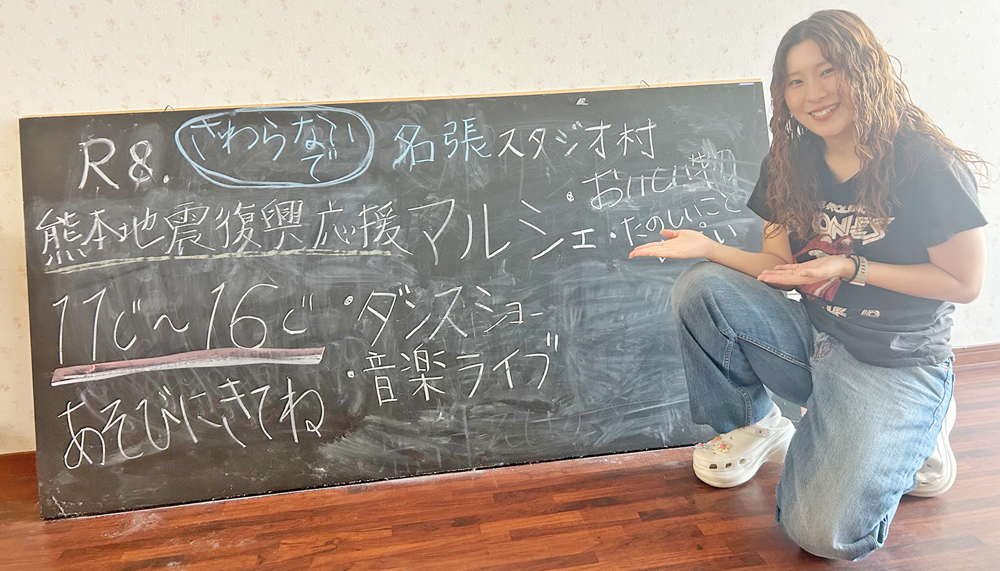 R8. さわらないで 名張スタジオ村
熊本地震復興応援マルシェ
・おいしいもの
・たのしいこと
11じ〜16じ
・ダンスショー
・音楽ライブ
あそびにきてね